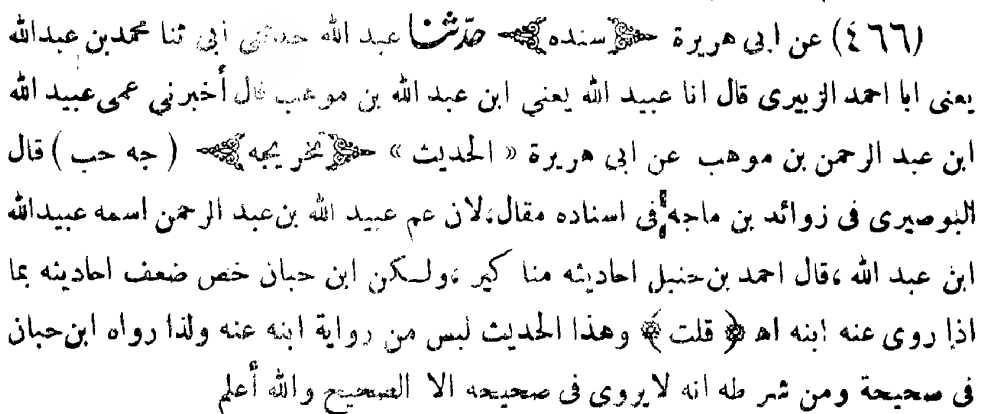 (٤٦٦) عن ابى هريرة ﴿سنده﴾ حدّثنا عبد الله حدثنى أبى ثنا محمد بن عبد الله
يعنى ابا احمد الزبيرى قال انا عبيد الله يعنى ابن عبد الله بن موهب قال أخبرنى عمى عبيد الله
ابن عبد الرحمن بن موهب عن ابى هريرة « الحديث » ﴿تخريجه﴾ ( جه حب ) قال
البوصيرى فى زوائد بن ماجه فى اسناده مقال، لان عم عبيد الله بن عبد الرحمن اسمه عبيد الله
ابن عبد الله ، قال احمد بن حنبل احاديثه مناكير ، ولكن ابن حبان خص ضعف احاديثه بما
اذا روى عنه ابنه اهـ ﴿ قلت ﴾ وهذا الحديث ليس من رواية ابنه عنه ولذا رواه ابن حبان
فى صحيحة ومن شرطه انه لا يروى فى صحيحه الا الصحيح والله أعلم